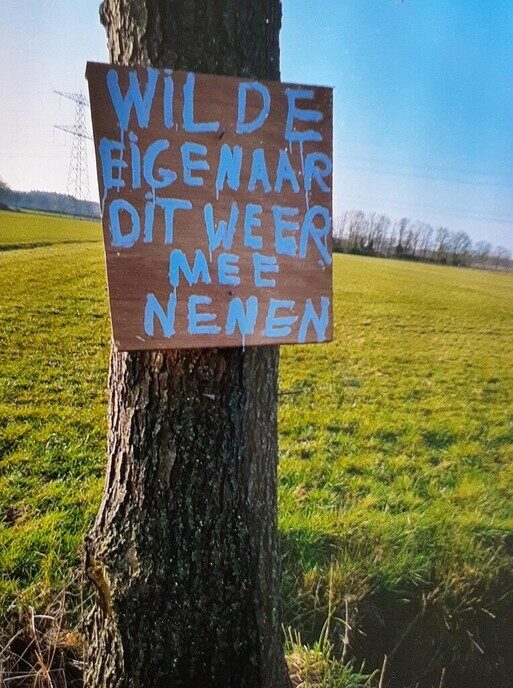 WiLDE
EiGENAAR
DiT WEER
MEE
NENEN